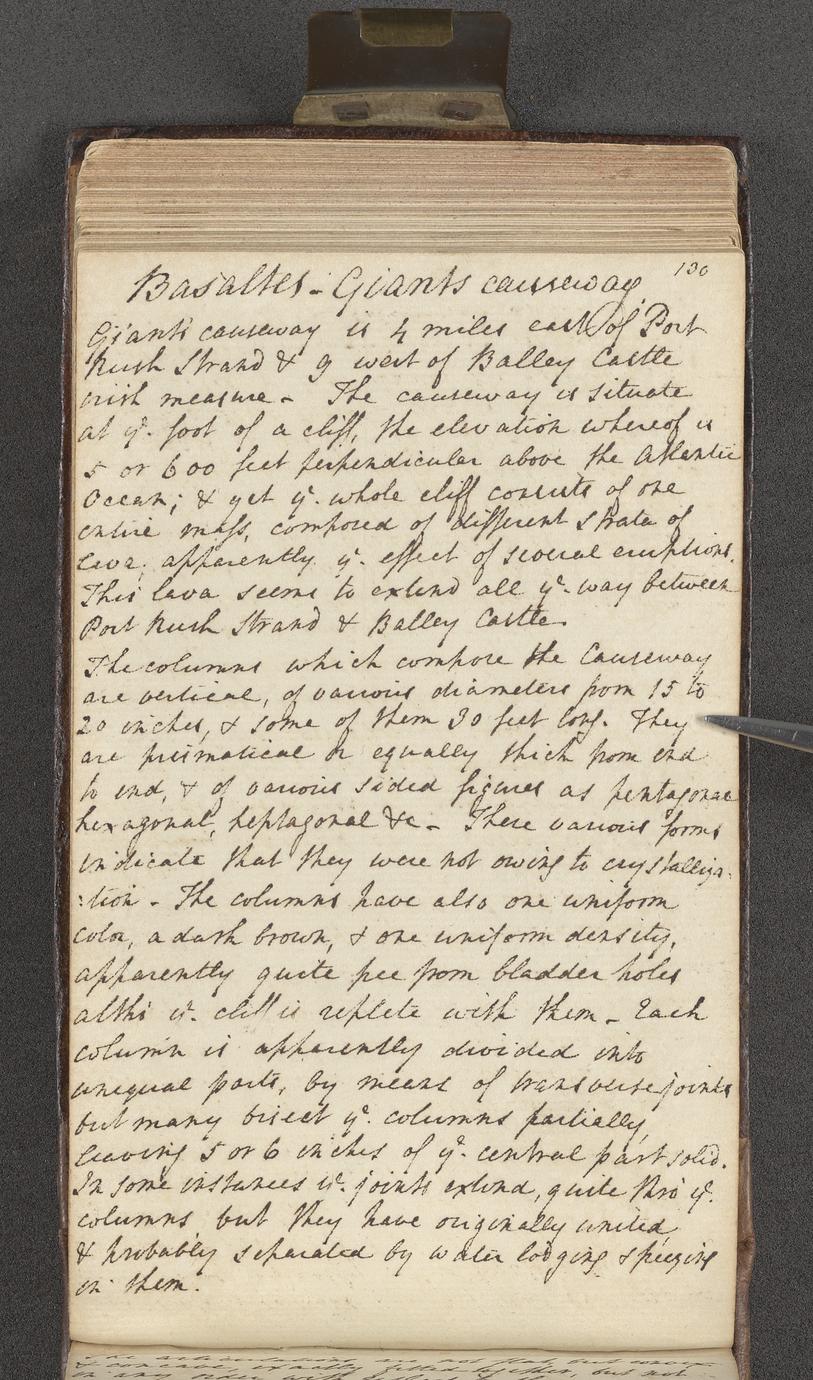 130
Basaltes - Giants causeway
Giants causeway is 4 miles east of Port
Rush Strand & 9 west of Balley Castle
irish measure - The causeway is situate
at yᵉ. foot of a cliff, the elevation whereof is
5 or 600 feet perpendicular above the Atlantic
Ocean; & yet yᵉ. whole cliff consists of one
entire mass, composed of different strata of
lava; apparently yᵉ. effect of several eruptions.
This lava seems to extend all yᵉ. way between
Port Rush Strand & Balley Castle.
The columns which compose the Causeway
are vertical, of various diameters from 15 to
20 inches, & some of them 30 feet long. They
are prismatical or equally thick from end
to end, & of various sided figures as pentagonal
hexagonal, heptagonal &c - These various forms
indicate that they were not owing to crystalliza-
:tion - The columns have also one uniform
color, a dark brown, & one uniform density,
apparently quite free from bladder holes
altho' yᵉ. cliff is replete with them - Each
column is apparently divided into
unequal parts, by means of transverse joints
but many bisect yᵉ. columns partially,
leaving 5 or 6 inches of yᵉ. central part solid.
In some instances yᵉ. joints extend, quite thro' yᵉ.
columns, but they have originally united
& probably separated by water lodging & freezing
in them.
are not flat but convex
& concave, exactly fitted together, but not
in any order with